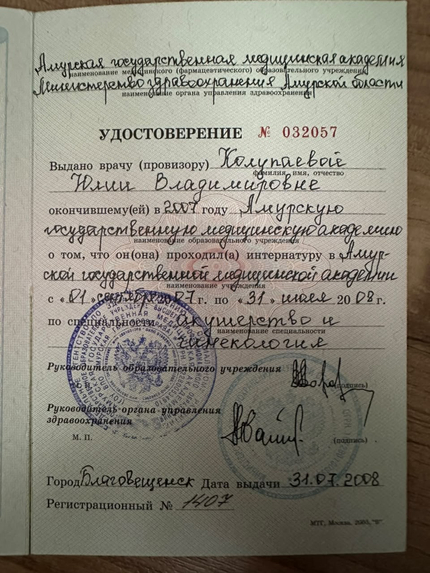 Амурская государственная медицинская академия
наименование медицинского (фармацевтического) образовательного учреждения
Министерство здравоохранения Амурской области
наименование органа управления здравоохранения
УДОСТОВЕРЕНИЕ № 032057
Выдано врачу (провизору) Колупаевой
фамилия, имя, отчество
Юлии Владимировне
окончившему(ей) в 2007 году Амурскую
государственную медицинскую академию
наименование образовательного учреждения
о том, что он(она) проходил(а) интернатуру в Амур-
ской государственной медицинской академии
наименование учреждения
с «01» сентября 2007 г. по «31» июля 2008 г.
по специальности акушерство и
наименование специальности
гинекология
Руководитель образовательного учреждения
(подпись)
Руководитель органа управления
здравоохранения
(подпись)
М. П.
Город Благовещенск Дата выдачи 31.07.2008
Регистрационный № 1407
МТГ, Москва, 2005, "В"